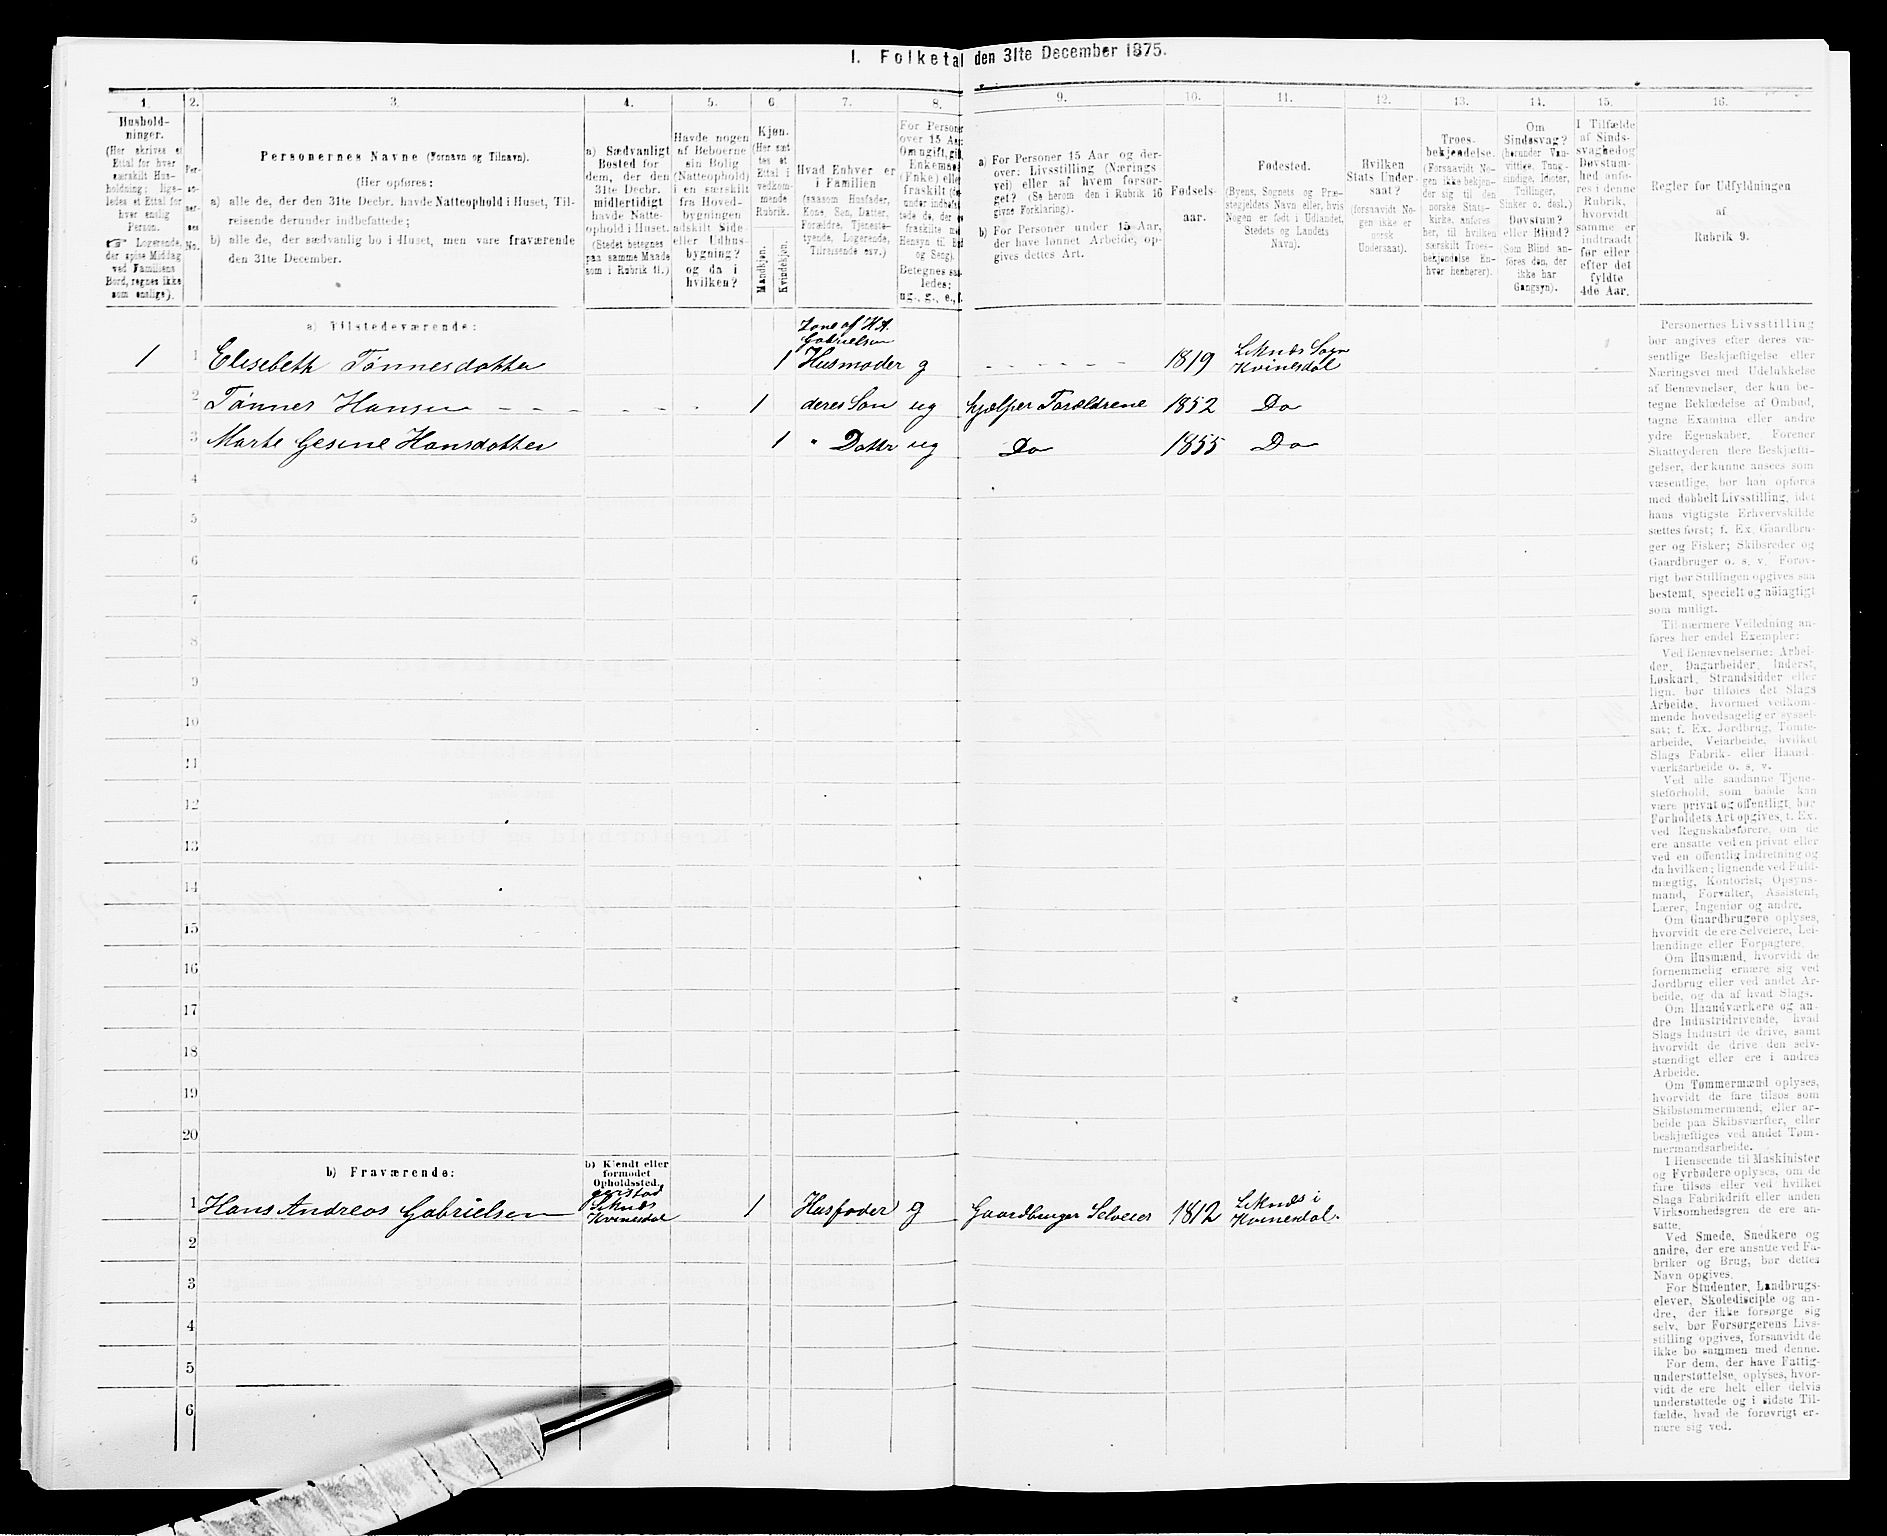 I. Folketal den 31te December 1875.
1. 2. 3. 4. 5. 6 7. 8. 9. 10. 11. 12. 13. 14. 15. 16.
Hushold-
ninger.
(Her skrives et
Ettal for hver
særskilt Hus-
holdning; lige-
ledes et Ettal for
hver enslig
Person.
☞ Logerende,
der spise Middag
ved Familiens
Bord, regnes ikke
som enslige).
Per-
so-
ner-
nes
No.
Personernes Navne (Fornavn og Tilnavn).
(Her opføres:
a) alle de, der den 31te Decbr. havde Natteophold i Huset, Til-
reisende derunder indbefattede;
b) alle de, der sædvanlig bo i Huset, men vare fraværende
den 31te December.
a) Sædvanligt
Bosted for
dem, der den
31te Decbr.
midlertidigt
havde Natte-
ophold i Huset.
(Stedet betegnes
paa samme Maade
som i Rubrik 11.)
Havde nogen
af Beboerne
sin Bolig
(Natteophold)
i en særskilt
fra Hoved-
bygningen
adskilt Side-
eller Udhus-
bygning?
og da i
hvilken?
Kjøn.
(Her sæt-
tes et
Ettal i
vedkom-
mende
Rubrik.
Mandkjøn.
Kvindekjøn.
Hvad Enhver er
i Familien
(saasom Husfader,
Kone, Søn, Datter,
Forældre, Tjeneste-
tyende, Logerende,
Tilreisende osv.)
For Persone
over 15 Aar
Om ugift, gift
Enkemand
(Enke) eller
fraskilt
Betegnes saa-
ledes:
ug., g., e., f.
a) For Personer 15 Aar og der-
over: Livsstilling (Nærings
vei) eller af hvem forsør-
get? (Se herom den i Rubrik 16
givne Forklaring).
b) For Personer under 15 Aar,
der have lønnet Arbeide, op-
gives dettes Art.
Fødsels-
aar.
Fødested.
(Byens, Sognets og Præ-
stegjeldets Navn eller, hvis
Nogen er født i Udlandet,
Stedets og Landets
Navn).
Hvilken
Stats Under-
saat?
(forsaavidt No-
gen ikke er
norsk
Undersaat).
Troes-
bekjendelse.
(Forsaavidt No-
gen ikke bekjen-
der sig til den
norske Stats-
kirke, anføres
her, til hvilken
særskilt Troes-
bekjendelse En-
hver henhører).
Om
Sindssvag?
(herunder Van-
vittige, Tung-
sindige, Idioter,
Tullinger,
Sinker o. desl.)
Døvstum?
eller Blind?
(Som Blind an-
føres den, der
ikke har
Gangsyn).
I Tilfælde
af Sinds-
svaghed og
Døvstum-
hed anfø-
res i denne
Rubrik,
hvorvidt
samme er
indtraadt
før eller
efter det
fyldte
4de Aar.
Regler for Udfyldningen
af
Rubrik 9.
a) Tilstedeværende:
Kone af H.A.
Gabrielsen
1 1 Elisebeth Tønnesdatter 1 Husmoder g - - - - - 1819 Leknds Sogn
Kvinesdal
2 Tønnes Hansen - - - - - - 1 deres Søn ug hjælper Forældrene 1852 Do
3 Marte Gesine Hansdatter 1 " Datter ug Do 1855 Do
4
5
6
7
8
9
10
11
12
13
14
15
16
17
18
19
20
b) Fraværende:
b) Kjendt eller
formodet
Opholdssted.
1 Hans Andreas Gabrielsen Leknds
Kvinesdal 1 Husfader g Gaardbruger Selveier 1812 Leknds i
Kvinesdal.
2
3
4
5
6
Personernes Livsstilling
bør angives efter deres væ-
sentlige Beskjæftigelse eller
Næringsvei med Udelukkelse
af Benævnelser, der kun be-
tegne Beklædelse af Ombud,
tagne Examina eller andre
ydre Egenskaber. Forener
Skatteyderen flere Beskjæfti-
gelser, der kunne ansees som
væsentlige, bør han opføres
med dobbelt Livsstilling, idet
hans vigtigste Erhvervskilde
sættes først; f. Ex. Gaardbru-
ger og Fisker; Skibsreder og
Gaardbruger o. s. v. Forøv-
rigt bør Stillingen opgives saa
bestemt, specielt og nöiagtigt
som muligt.
Til nærmere Veiledning an-
føres her endel Exempler:
Ved Benævnelserne: Arbei-
der, Dagarbeider, Inderst,
Løskarl, Strandsidder eller
lign. bør tilføies det Slags
Arbeide, hvormed vedkom-
mende hovedsagelig er syssel-
sat; f. Ex. Jordbrug, Tomte-
arbeide, Veiarbeide, hvilket
Slags Fabrik- eller Haand-
værksarbeide o. s. v.
Ved alle saadanne Tjene-
steforhold, som baade kan
være privat og offentligt, bør
Forholdets Art opgives, f. Ex.
ved Regnskabsførere, om de
ere ansatte ved en privat eller
ved en offentlig Indretning og
da hvilken; lignende ved Fuld-
mægtig, Kontorist, Opsyns-
mand, Forvalter, Assistent,
Lærer, Ingeniør og andre.
Om Gaardbrugere oplyses,
hvorvidt de ere Selveiere, Lei-
lændinge eller Forpagtere.
Om Husmænd, hvorvidt de
fornemmelig ernære sig ved
Jordbrug eller ved andet Ar-
beide, og da af hvad Slags.
Om Haandværkere og an-
dre Industridrivende, hvad
Slags Industri de drive, samt
hvorvidt de drive den selv-
stændigt eller ere i andres
Arbeide.
Om Tømmermænd oplyses,
hvorvidt de fare tilsøs som
Skibstømmermænd, eller ar-
beide paa Skibsværfter, eller
beskjæftiges ved andet Tøm-
mermandsarbeide.
I Henseende til Maskinister
og Fyrbødere oplyses, om de
fare tilsøs eller ved hvilket
Slags Fabrikdrift eller anden
Virksomhedsgren de ere an-
satte.
Ved Smede, Snedkere og
andre, der ere ansatte ved Fa-
briker og Brug, bør dettes
Navn opgives.
For Studenter, Landbrugs-
elever, Skoledisciple og an-
dre, der ikke forsørge sig
selv, bør Forsørgerens Livs-
stilling opgives, forsaavidt de
ikke bo sammen med denne.
For dem, der have Fattig-
understøttelse, oplyses, hvor-
vidt de ere helt eller delvis
understøttede og i sidste Til-
fælde, hvad de forøvrigt er-
nære sig ved.